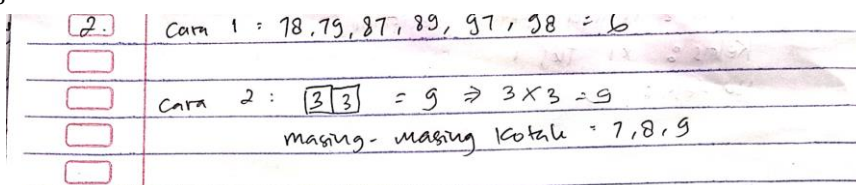 2. Cara 1 : 78, 79, 87, 89, 97, 98 = 6
Cara 2 : 3 3 = 9 ⇒ 3 x 3 = 9
masing-masing kotak = 7, 8, 9